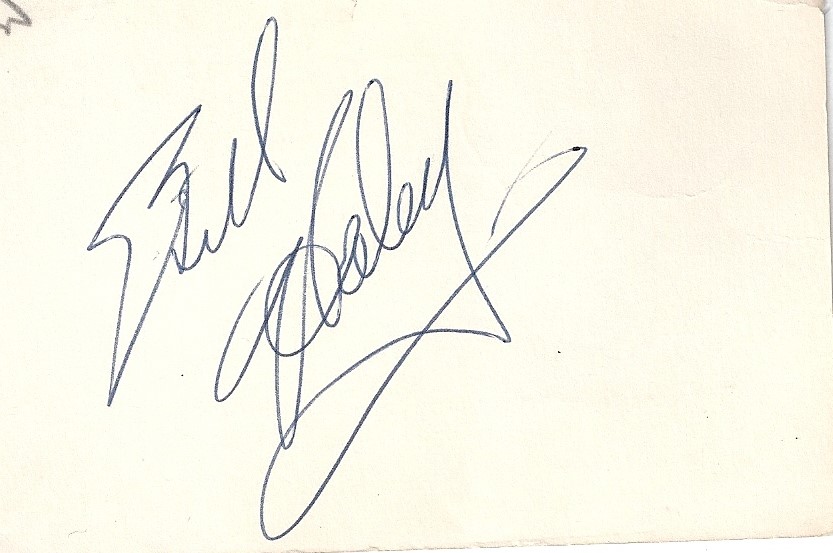 Bill
Haley